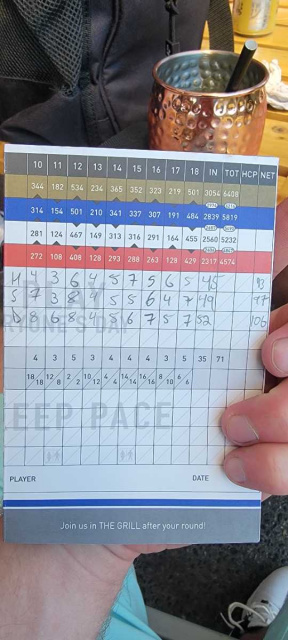 10 11 12 13 14 15 16 17 18 IN TOT HCP NET
344 182 534 234 365 352 323 219 501 3054 6408
314 154 501 210 341 337 307 191 484 2839 5819
281 124 467 149 313 316 291 164 455 2560 5232
272 108 408 128 293 288 263 128 429 2317 4574
H 4 3 6 4 5 7 5 6 5 45 93
S 7 3 8 4 5 5 6 4 7 49 97
D 8 6 8 4 5 6 7 5 7 52 106
4 3 5 3 4 4 4 3 5 35 71
EEP PACE
PLAYER DATE
Join us in THE GRILL after your round!